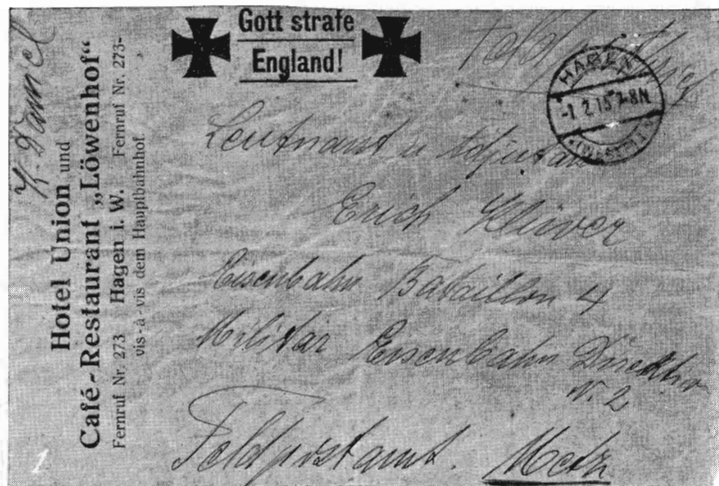 Gott strafe
England!
HAGEN
-1.2.15.7-8N
(WESTF.)
Hotel Union und
Café-Restaurant „Löwenhof“
Fernruf Nr. 273 Hagen i. W. Fernruf Nr. 273
vis-à-vis dem Hauptbahnhof
Leutnant u Adjutant
Erich
Eisenbahn Bataillon 4
Militär Eisenbahn Direktion
N. 2
Feldpostamt. Metz
1